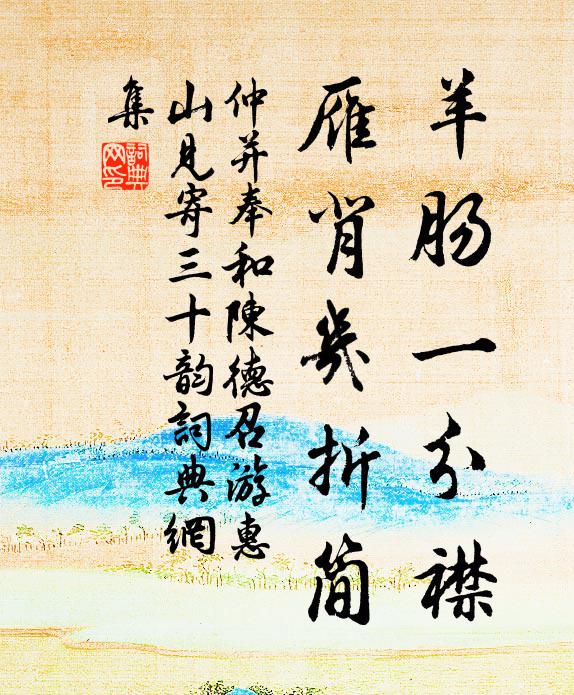 羊腸一分襟
雁背幾折簡
仲并奉和陳德召游惠
山見寄三十韵詞典網
集
詞典網印